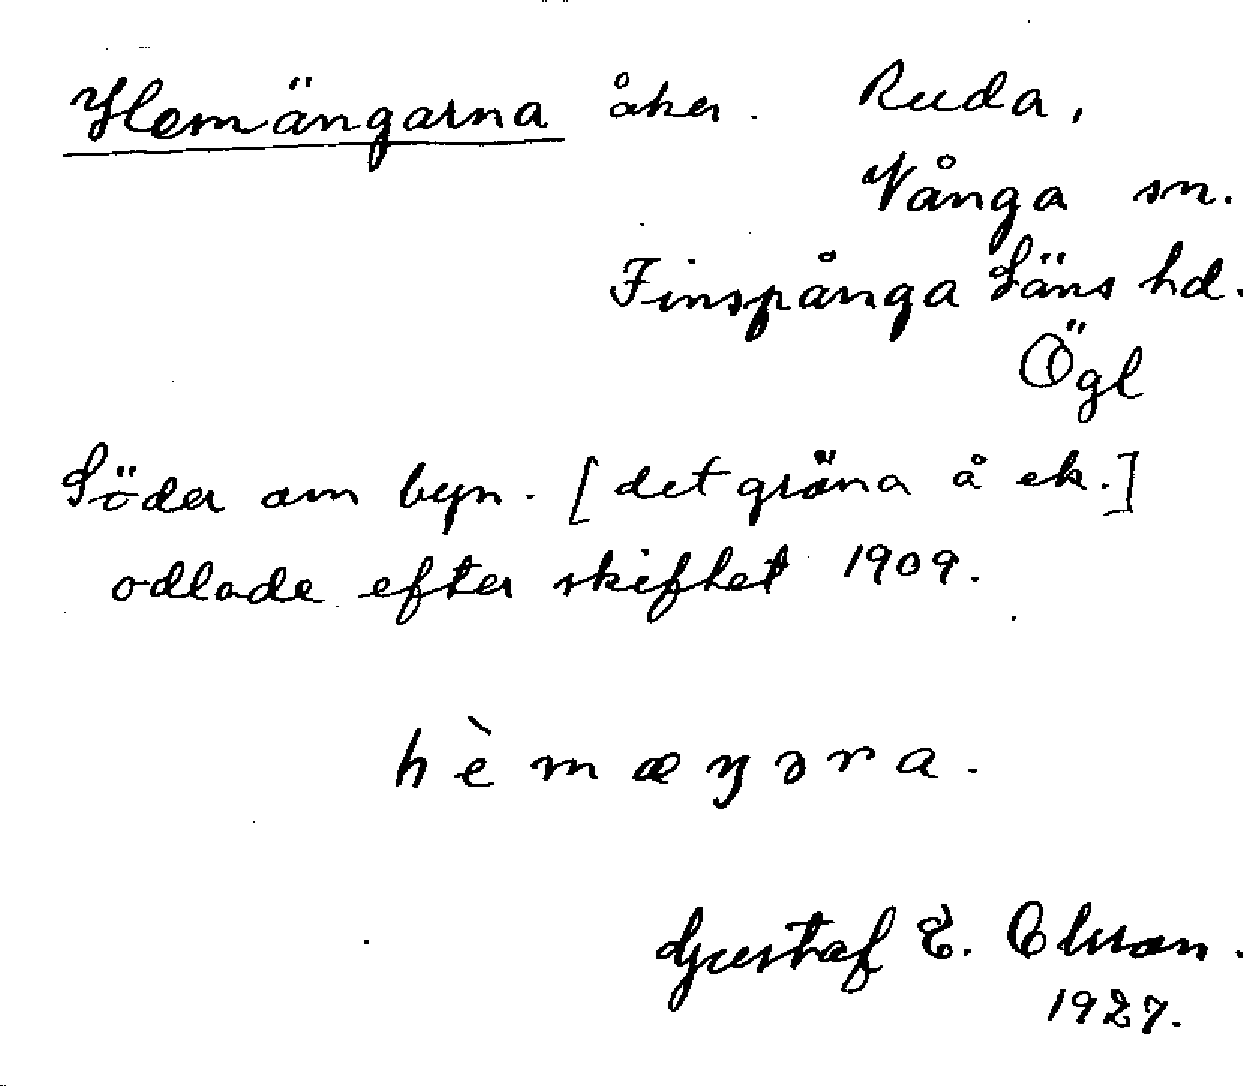 Hemängarna åker. Ruda,
Vånga sn.
Finspånga Läns hd.
Ögl
Söder om byn. [det gröna å ek.]
odlade efter skiftet 1909.
hèmæŋəra.
Gustaf E. Olsson.
1927.